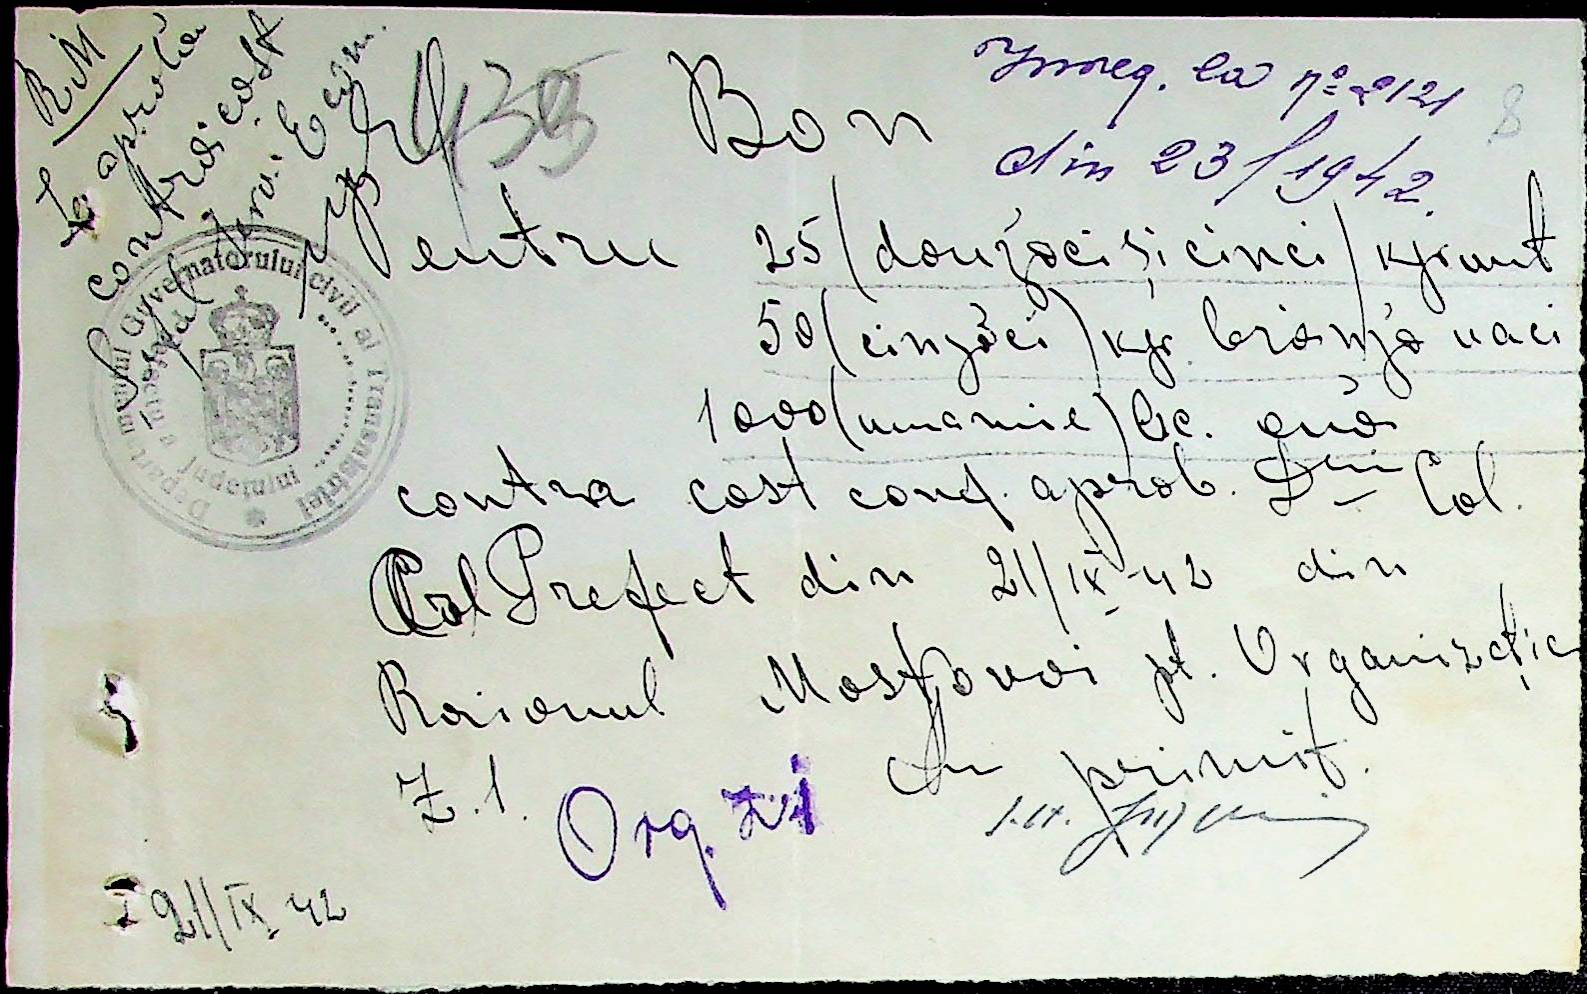 R.M
Se aprobă
contra cost
Serv. Econ.
439
Bon
Înreg. la nº 2121
din 23/1942.
8
Pentru 25 (douăzeci și cinci) kgr unt
50 (cinzeci) kgr. brânză vaci
1000 (una mie) bc. ouă
contra cost conf. aprob. Dlui Col.
Prefect din 21/IX-42 din
Raionul Mostovoi pt. Organizația
Z.1.
Am primit.
Org. Z1
21/IX-42
Departamentul Guvernatorului civil al Transnistriei
Prefectura Județului